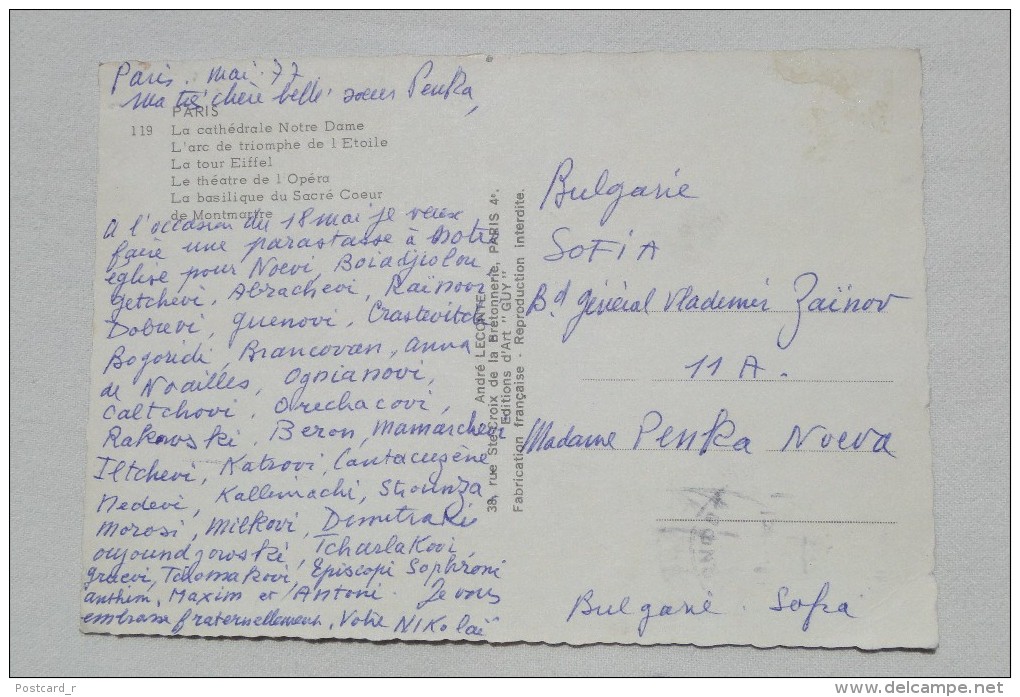 Paris. mai. 77
Ma très chère belle soeur Penka,
PARIS
119 La cathédrale Notre Dame
L'arc de triomphe de l Etoile
La tour Eiffel
Le théatre de l Opéra
La basilique du Sacré Coeur
de Montmartre
A l'occasion du 18 mai je veux
faire une parastasse à notre
église pour Noevi, Boiadjiolou
Getchevi, Abrachevi, Raïnov,
Dobrevi, Guenovi, Crastevitch
Bogoridi, Brancovan, Anna
de Noailles, Ognianovi,
Caltchovi, Orechacovi,
Rakowski, Beron, Mamarchevi
Iltchevi, Katzovi, Cantacuzène
Nedevi, Kallimachi, Stourdza
Morosi, Milkovi, Dimitraki
oujoundjovski, Tcharlakovi,
gracvi, Talamakovi, Episcopi Sophroni
anthim, Maxim et Antoni. Je vous
embrasse fraternellement, Votre NIKOLAÏ
André LECONTE
38, rue Ste-Croix de la Bretonnerie, PARIS 4e.
"Editions d'Art "GUY"
Fabrication française - Reproduction interdite.
Bulgarie
SOFIA
Bd Général Vlademir Zaïnov
11 A.
Madame Penka Noeva
Bulgarie. Sofia
Postcard_r
http://www.delcampe.net